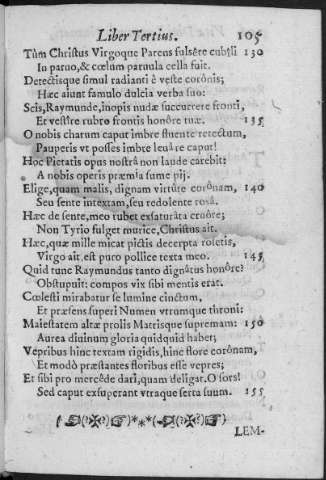 Liber Tertius. 105
Tùm Christus Virgoque Parens fulsêre cubîli 130
In paruo, & cœlum paruula cella fuit.
Detectisque simul radianti è veste corônis;
Hæc aiunt famulo dulcia verba suo:
Scis, Raymunde, inopis nudæ succurrere fronti,
Et vestîre rubro frontis honôre tuæ. 135
O nobis charum caput imbre fluente retectum,
Pauperis vt posses imbre leuâre caput!
Hoc Pietatis opus nostrâ non laude carebit:
A nobis operis præmia sume pij.
Elige, quam malis, dignam virtûte corônam, 140
Seu sente intextam, seu redolente rosâ.
Hæc de sente, meo rubet exsaturâta cruôre;
Non Tyrio fulget murice, Christus ait.
Hæc, quæ mille micat pictis decerpta rosetis,
Virgo ait, est puro pollice texta meo. 145
Quid tunc Raymundus tanto dignâtus honôre?
Obstupuit: compos vix sibi mentis erat.
Cœlesti mirabatur se lumine cinctum,
Et præsens superi Numen vtrumque throni:
Maiestatem altæ prolis Matrisque supremam: 150
Aurea diuinum gloria quidquid habet;
Vepribus hinc textam rigidis, hinc flore corônam,
Et modò præstantes floribus esse vepres;
Et sibi pro mercêde dari, quam deligat. O sors!
Sed caput exsuperant vtraque serta suum. 155
LEM-